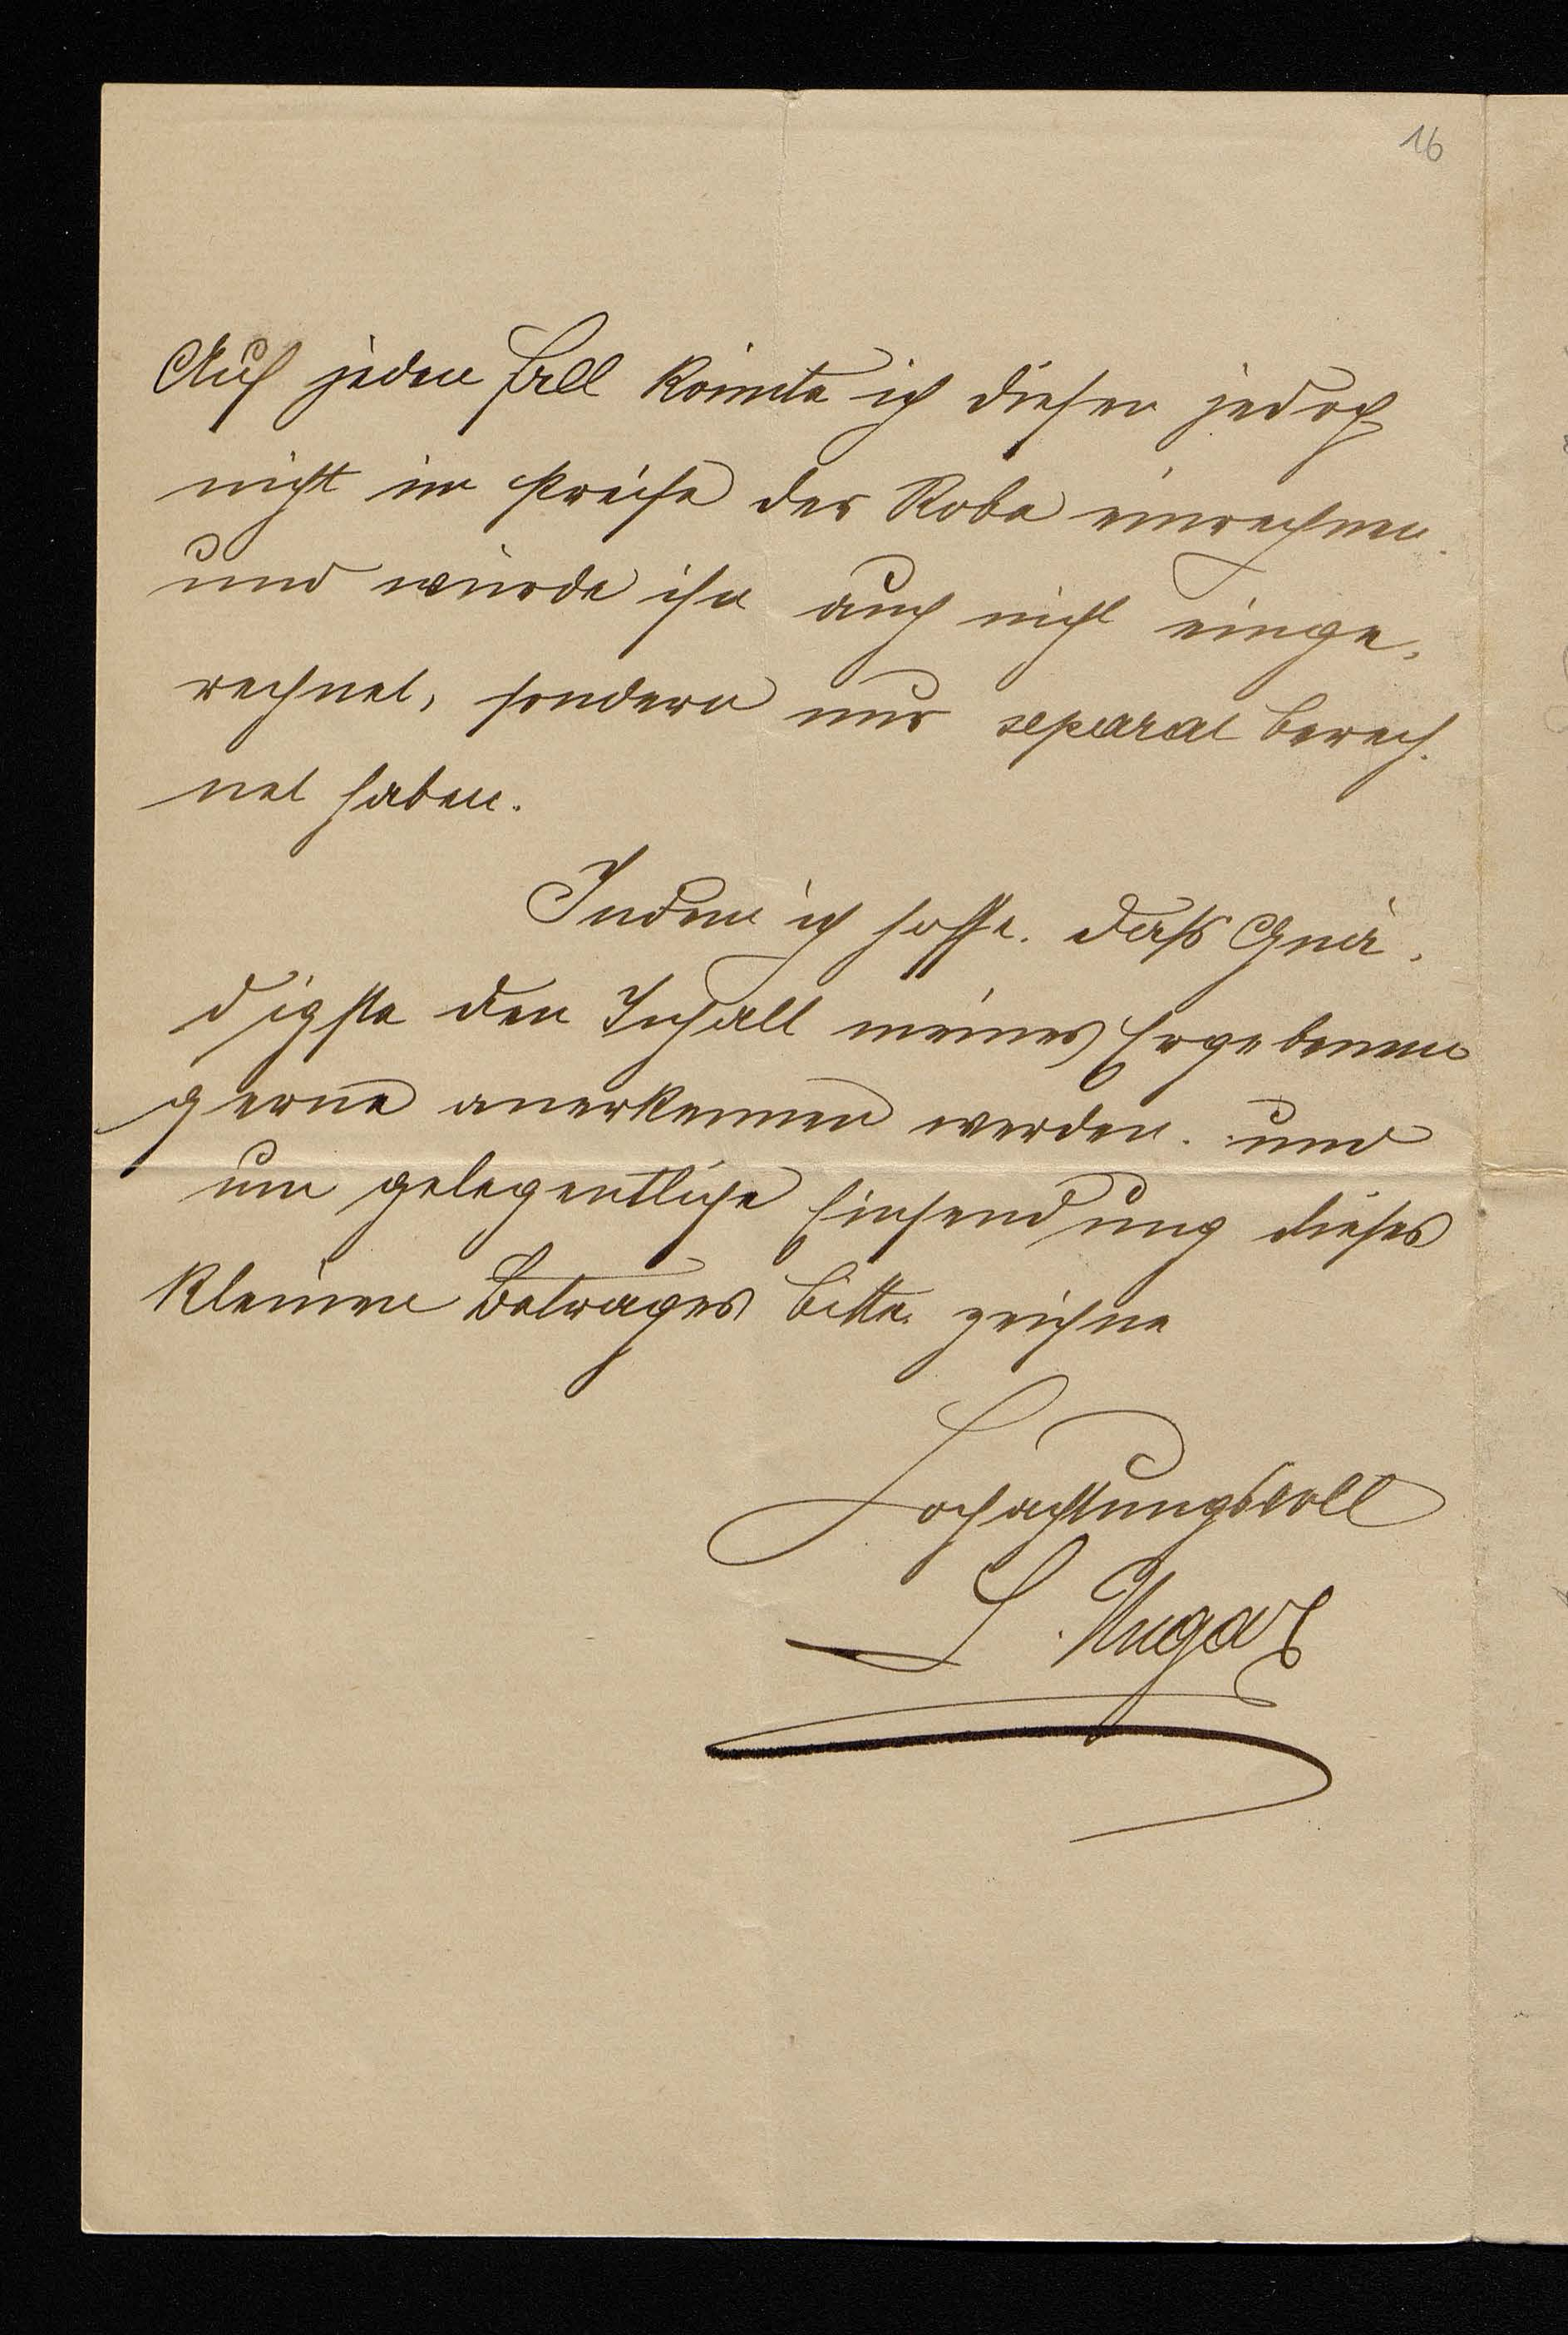 16
Auf jeden Fall könnte ich diesen jedoch
nicht im Preise der Robe einrechnen.
und würde ihn auch nicht einge,
rechnet, sondern nur separat berech.
net haben.
Indem ich hoffe. daß Gnä,
digste den Inhalt meines Ergebenen
gerne anerkennen werden. und
um gelegentliche Einsendung dieses
kleinen Betrages bitte. zeichne
Hochachtungsvoll
S. Ungar